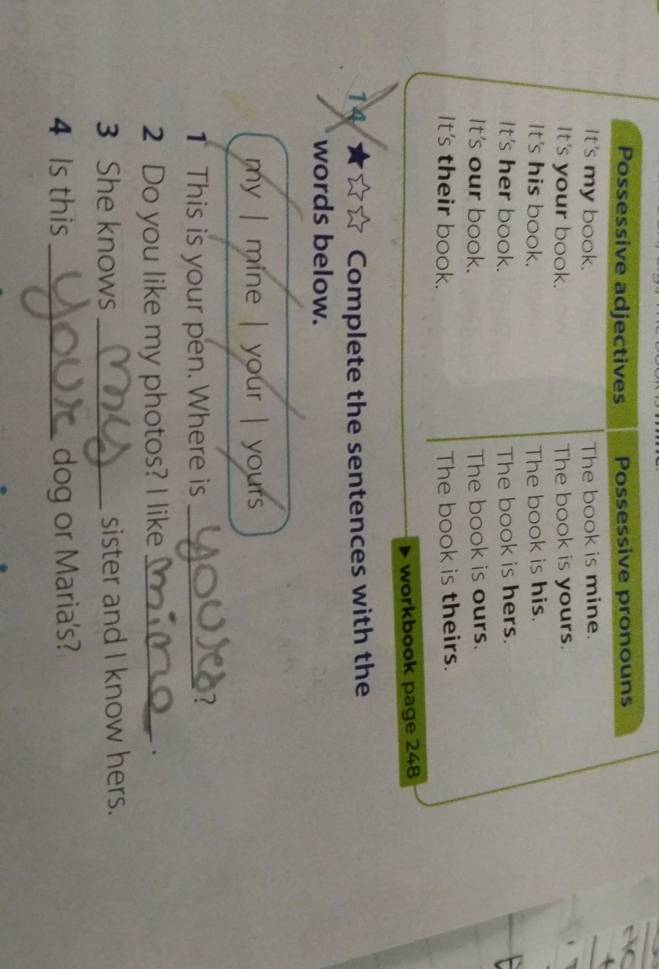 Possessive adjectives Possessive pronouns
It's my book. The book is mine.
It's your book. The book is yours.
It's his book. The book is his.
It's her book. The book is hers.
It's our book. The book is ours.
It's their book. The book is theirs.
▶ workbook page 248
14 ★☆☆ Complete the sentences with the
words below.
my | mine | your | yours
1 This is your pen. Where is yours?
2 Do you like my photos? I like mine.
3 She knows my sister and I know hers.
4 Is this your dog or Maria's?